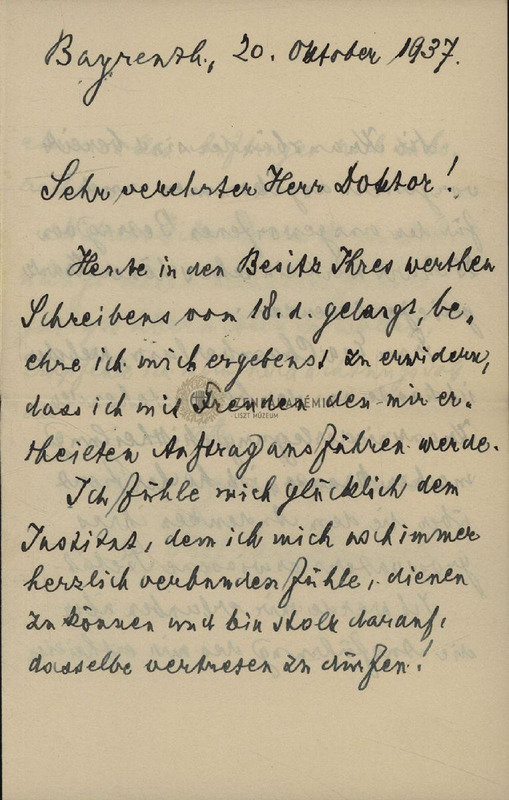 Bayreuth, 20. Oktober 1937.
Sehr verehrter Herr Doktor!
Heute in den Besitz Ihres werthen
Schreibens vom 18. d. gelangt, be„
ehre ich mich ergebenst zu erwidern,
dass ich mit Freuden den mir er„
theilten Auftrag ausführen werde.
Ich fühle mich glücklich dem
Institut, dem ich mich noch immer
herzlich verbunden fühle, dienen
zu können und bin stolz darauf,
dasselbe vertreten zu dürfen!
ZENEAKADÉMIA
LISZT MÚZEUM